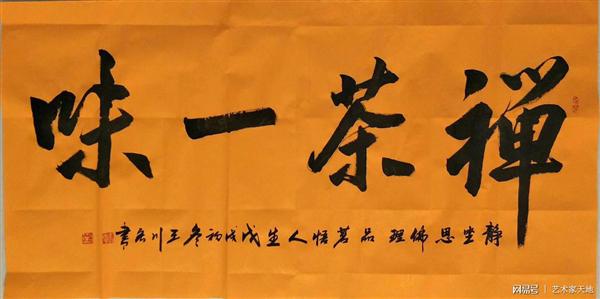 禅茶一味
静坐思佛理品茗悟人生戊戌初冬王川君书
网易号 | 艺术家天地